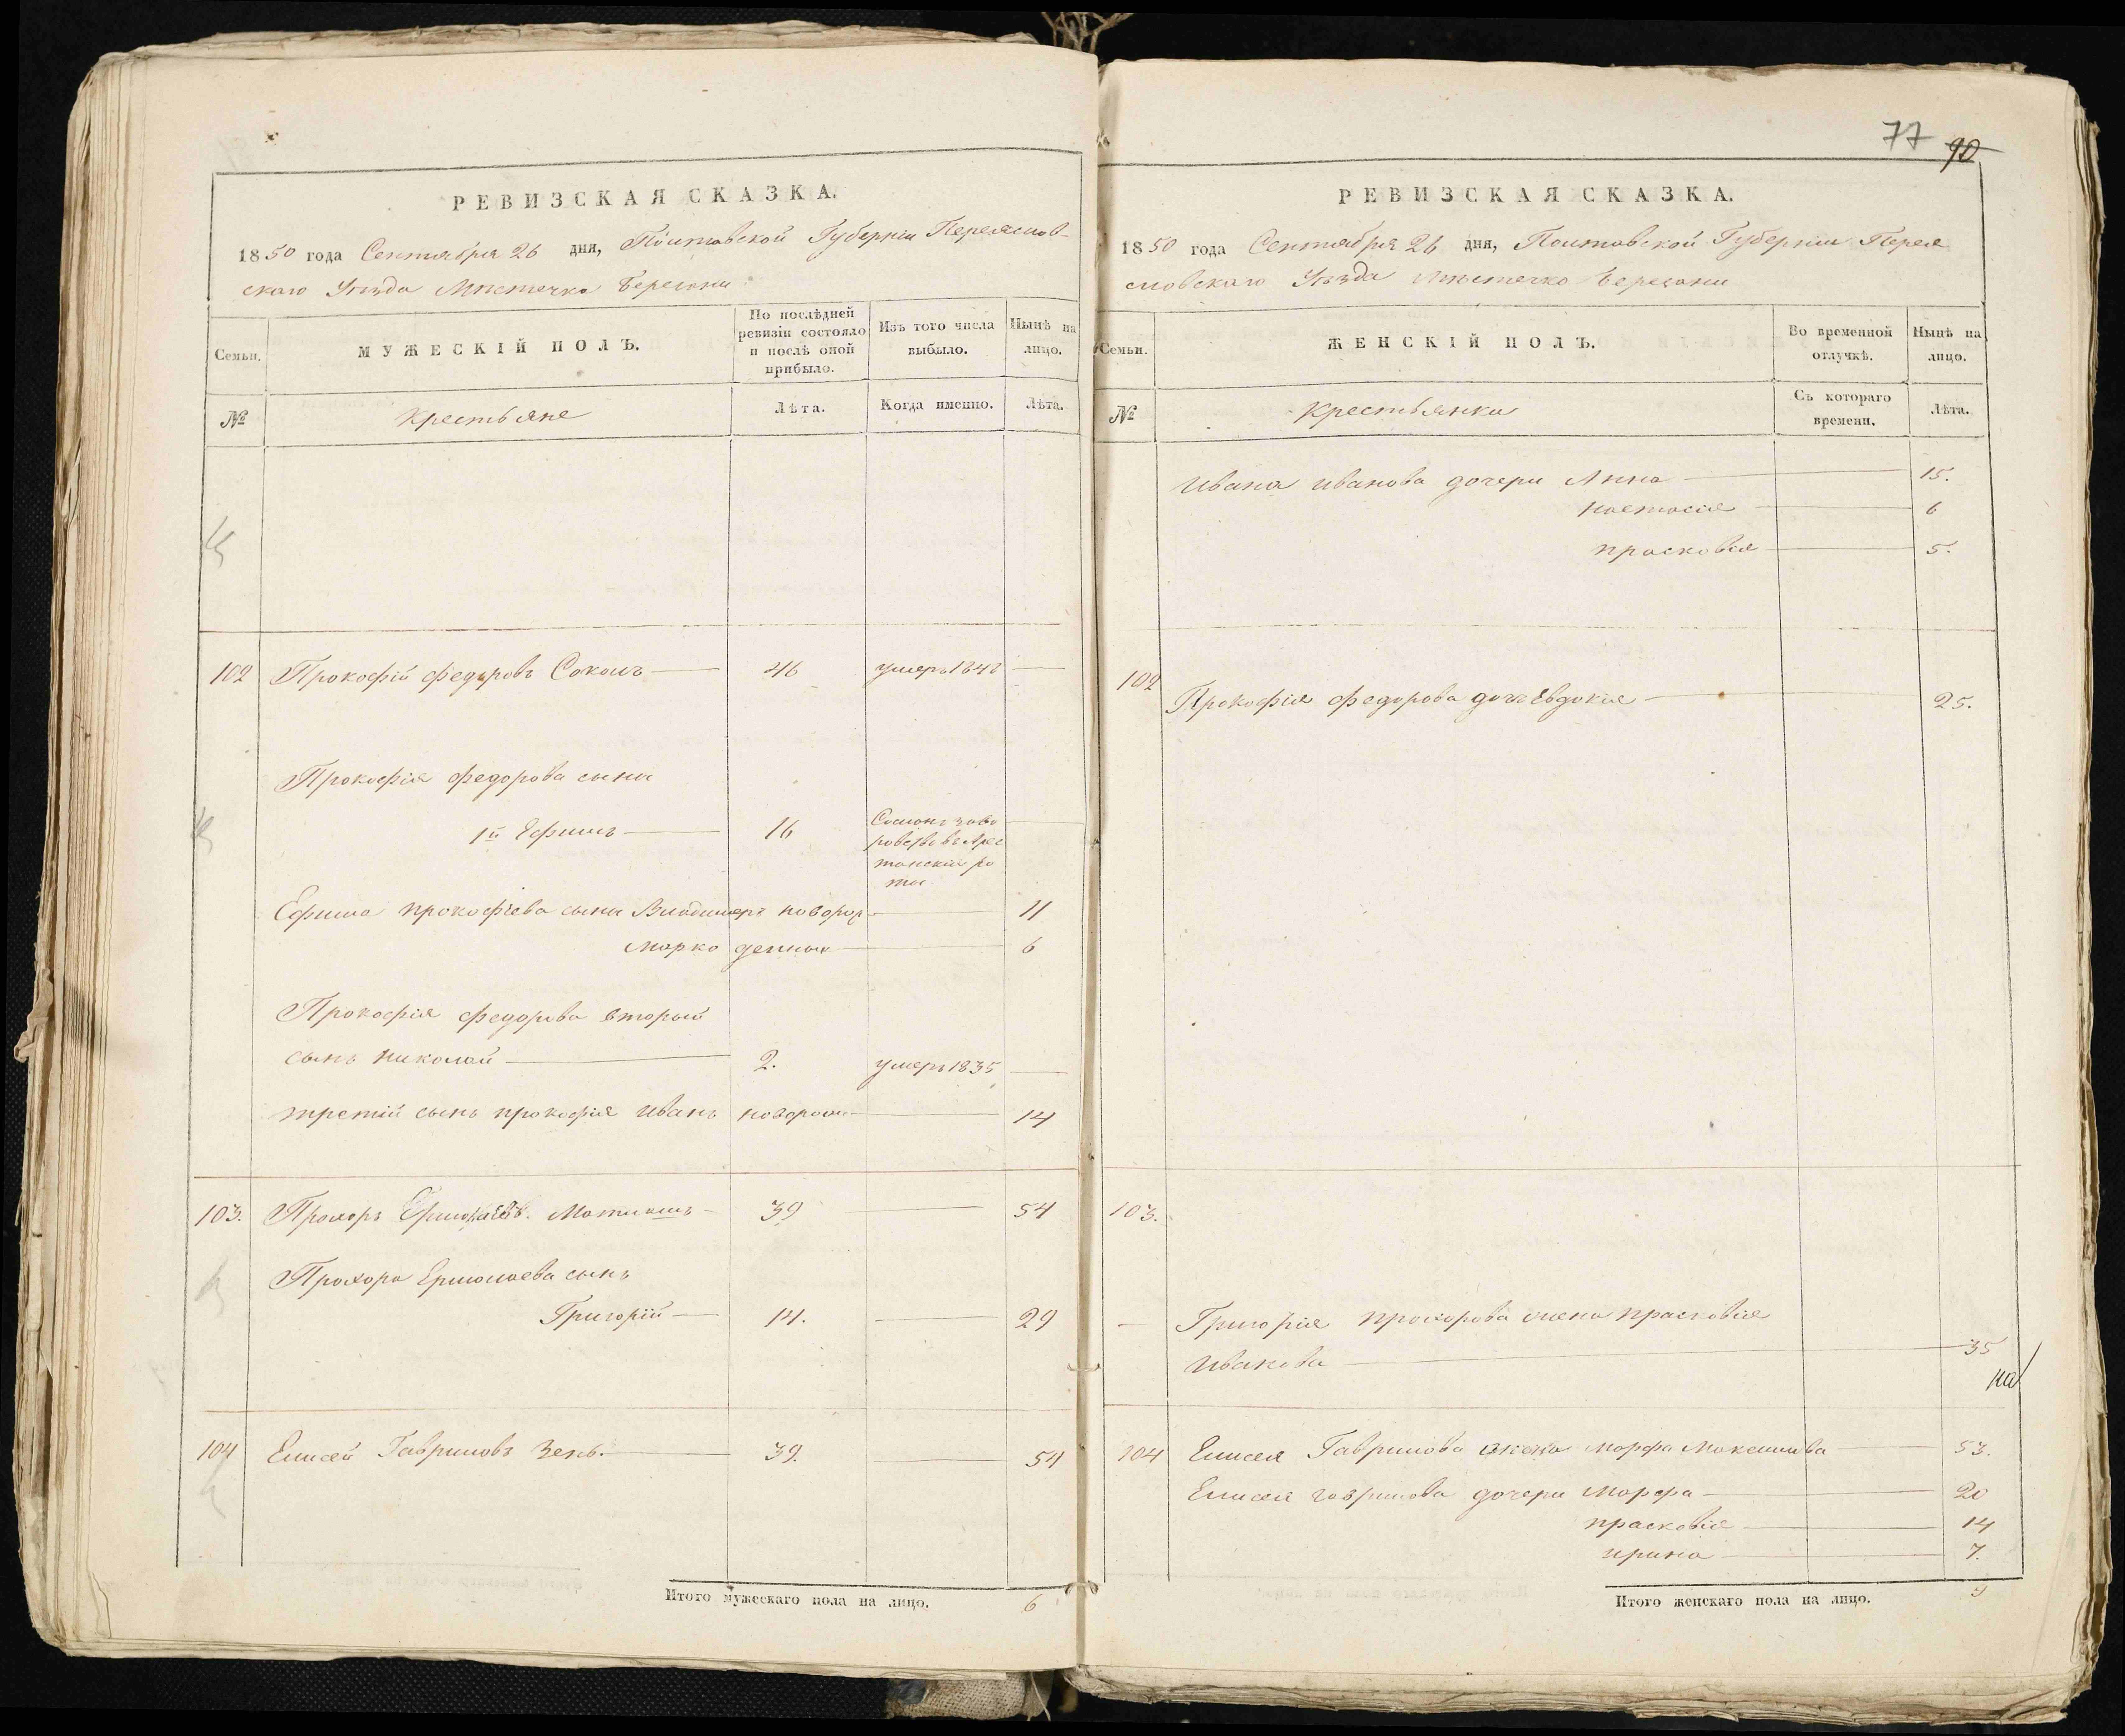 РЕВИЗСКАЯ СКАЗКА.
1850 года Сентября 26 дня, Полтавской Губерніи Переяслов-
скаго Уѣзда Мѣстечка Березани
Семьи.
МУЖЕСКІЙ ПОЛЪ.
По послѣдней ревизіи состояло и послѣ оной прибыло.
Изъ того числа выбыло.
Нынѣ на лицо.
№
Крестьяне
Лѣта.
Когда именно.
Лѣта.
102 Прокофій Федоровъ Соколъ 46 умеръ 1848
Прокофія Федорова сыны
1й Ефимъ 16 Сосланъ за во
ровство въ Арес
танскіи ро
ты
Ефима прокофіева сыны Владимеръ новорож 11
Марко денные 6
Прокофія Федорова вторый
сынъ Николай 2. умеръ 1835
третій сынъ прокофія Иванъ новорож 14
103. Прохоръ Матюшъ 39 54
Прохора Ермолаева сынъ
Григорій 14. 29
104 Елисей Гавриловъ Зень. 39. 54
Итого мужескаго пола на лицо. 6
77 90
РЕВИЗСКАЯ СКАЗКА.
1850 года Сентября 26 дня, Полтавской Губерніи Перея
словскаго Уѣзда Мѣстечко Березани
Семьи.
ЖЕНСКІЙ ПОЛЪ.
Во временной отлучкѣ.
Нынѣ на лицо.
№
Крестьянки
Съ котораго времени.
Лѣта.
Ивана Иванова дочери Анна 15.
Настасія 6
Прасковія 5.
102 Прокофія Федорова дочь Евдокія 25.
103.
Григорія Прохорова жена Прасковія
Иванова 35
104 Елисея Гаврилова жена Марфа Максимова 53.
Елисея Гаврилова дочери Марфа 20
Прасковія 14
Ирина 7.
Итого женскаго пола на лицо. 9